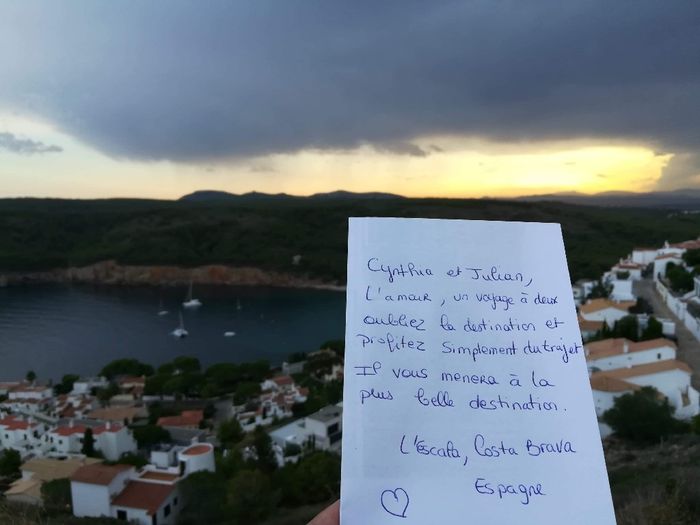 Cynthia et Julian,
L'amour, un voyage à deux
oubliez la destination et
profitez simplement du trajet
Il vous menera à la
plus belle destination.
L'Escala, Costa Brava
Espagne